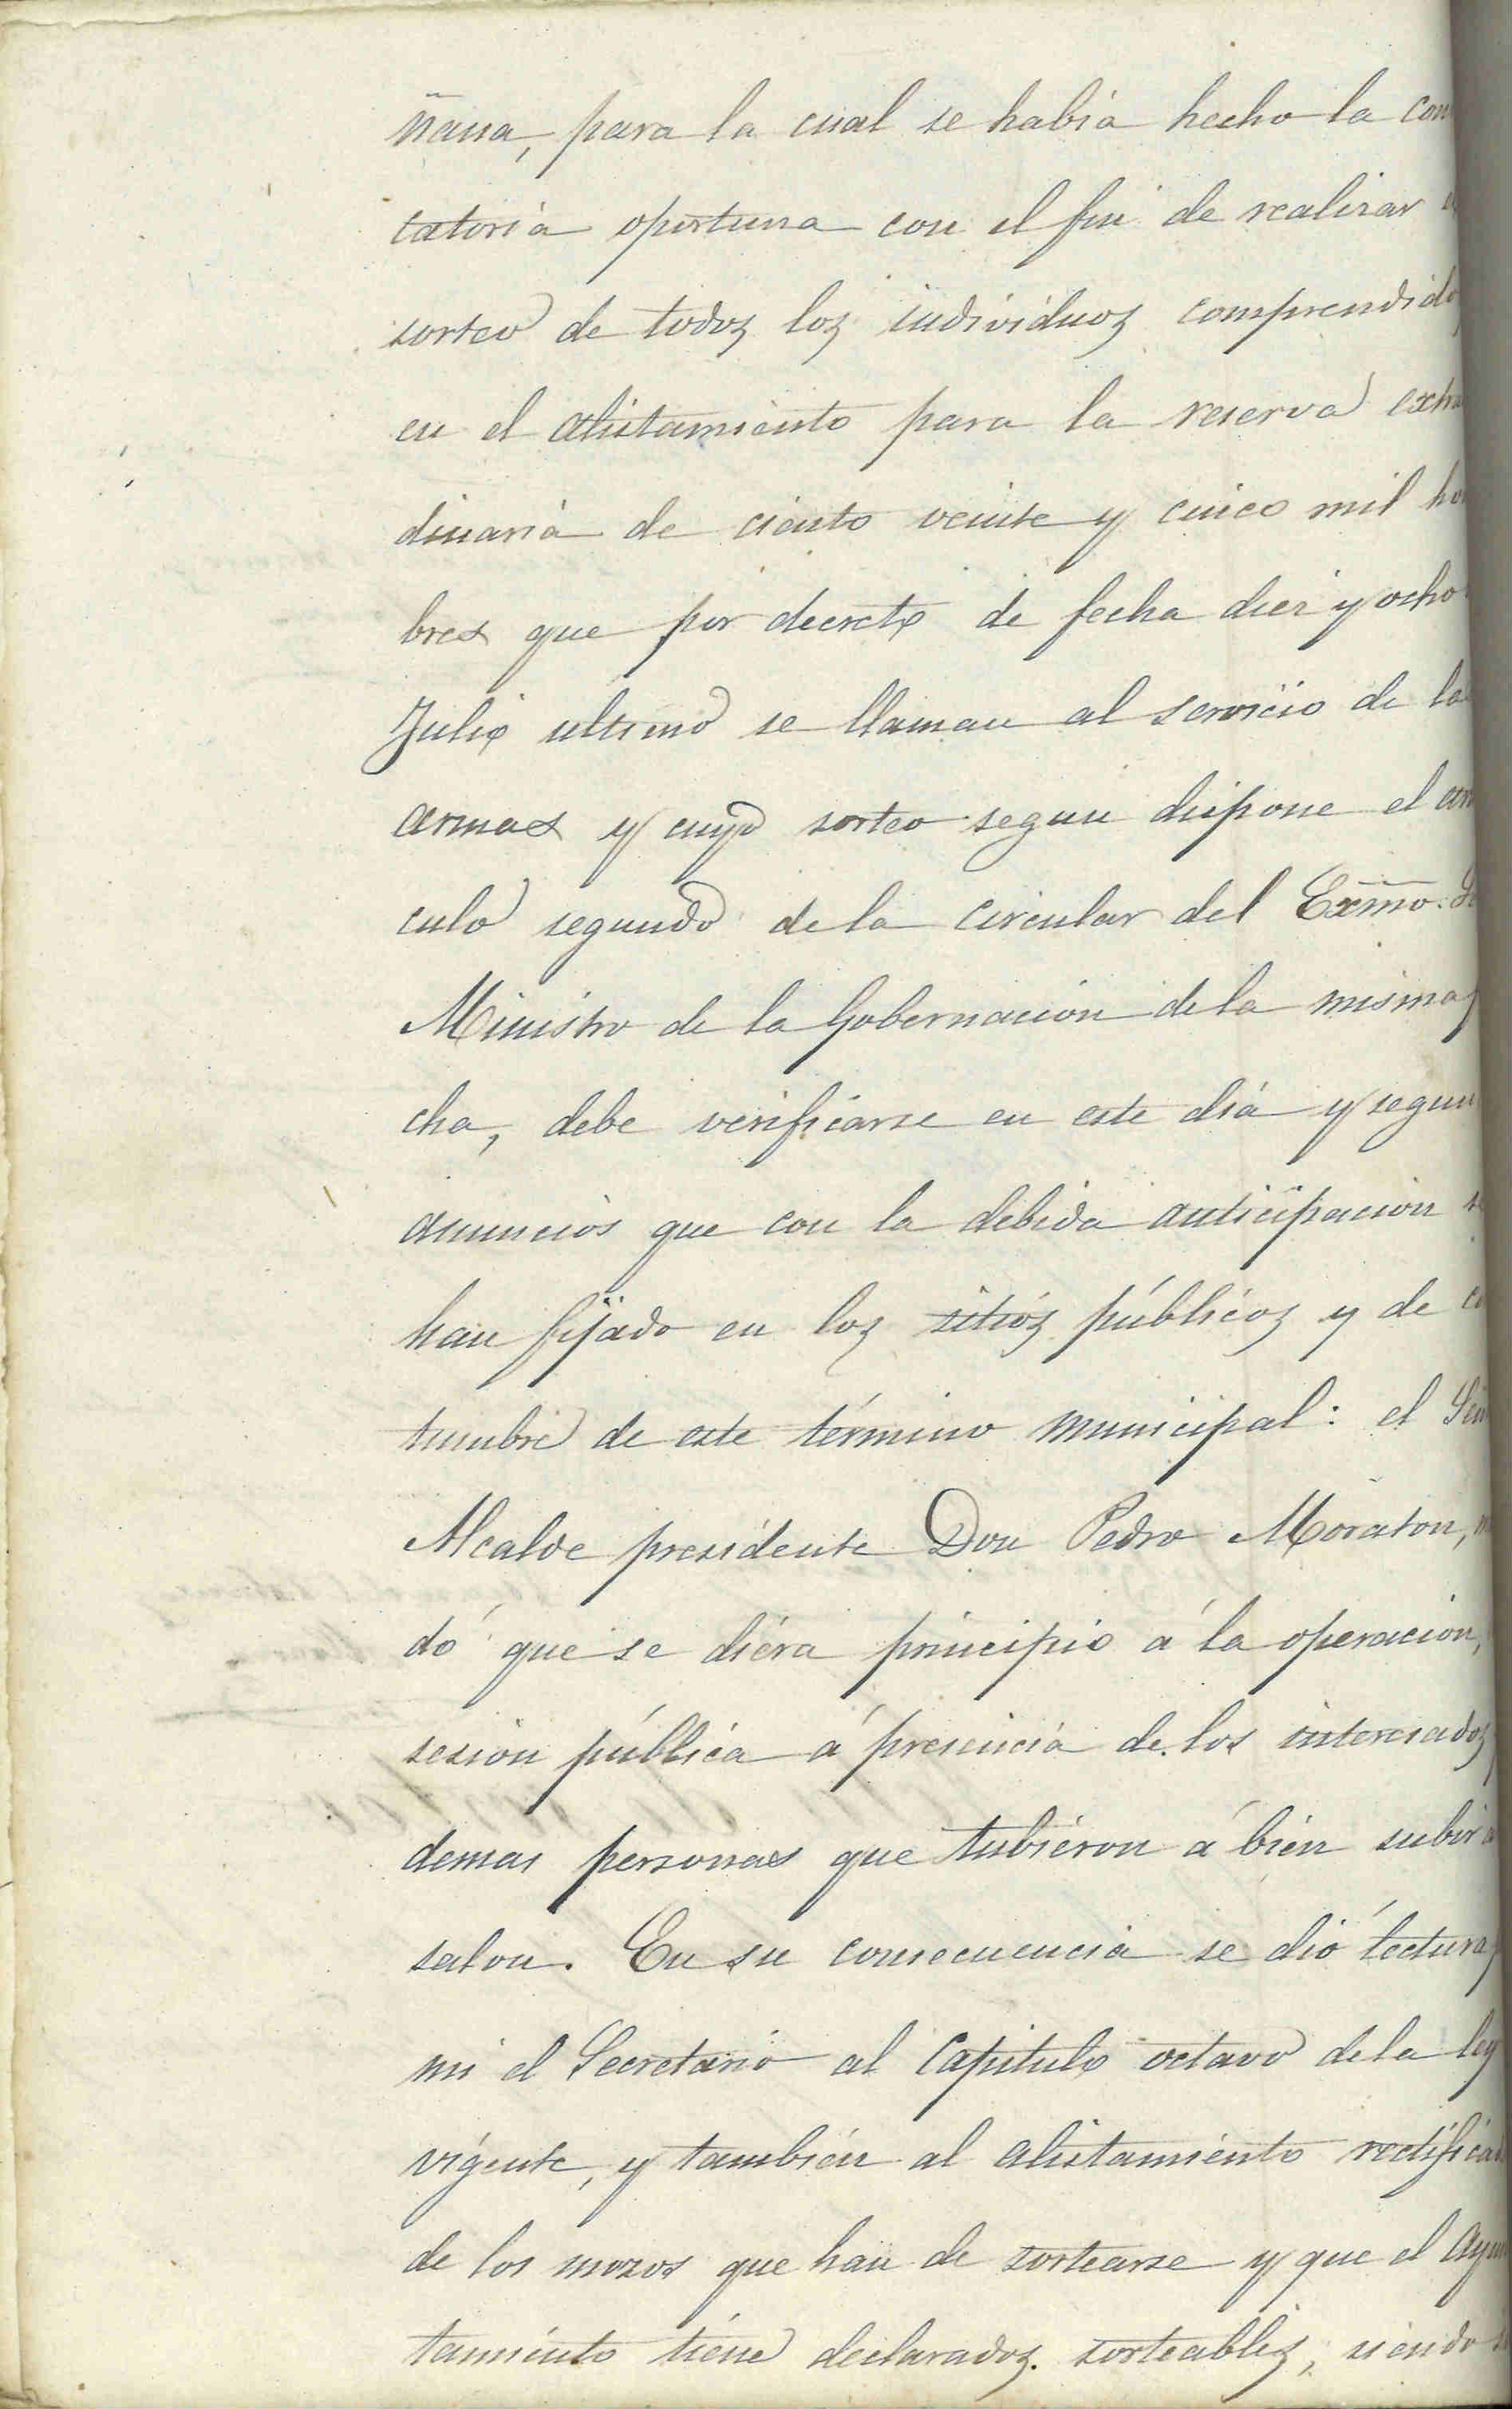 ñana, para la cual se habia hecho la con
catoria oportuna con el fin de realizar e
sorteo de todos los individuos comprendidos
en el alistamiento para la reserva extra
dinaria de ciento veinte y cinco mil ho
bres que por decreto de fecha diez y ocho
Julio ultimo se llaman al servicio de la
armas y cuyo sorteo segun dispone el ar
culo segundo de la circular del Exmo. S
Ministro de la Gobernacion de la misma f
cha, debe verificarse en este dia y segun
anuncios que con la debida anticipacion s
han fijado en los sitios públicos y de co
tumbre de este término municipal: el Señ
Alcalde presidente Don Pedro Moraton, m
dó que se diera principio á la operacion,
sesion pública á presencia de los interesados
demas personas que tubieron á bien subir a
salon. En su consecuencia se dió lectura p
mi el Secretario al Capitulo octavo de la ley
vigente, y tambien al alistamiento rectifica
de los mozos que han de sortearse y que el Ayun
tamiento tiene declarados sorteables, siendo